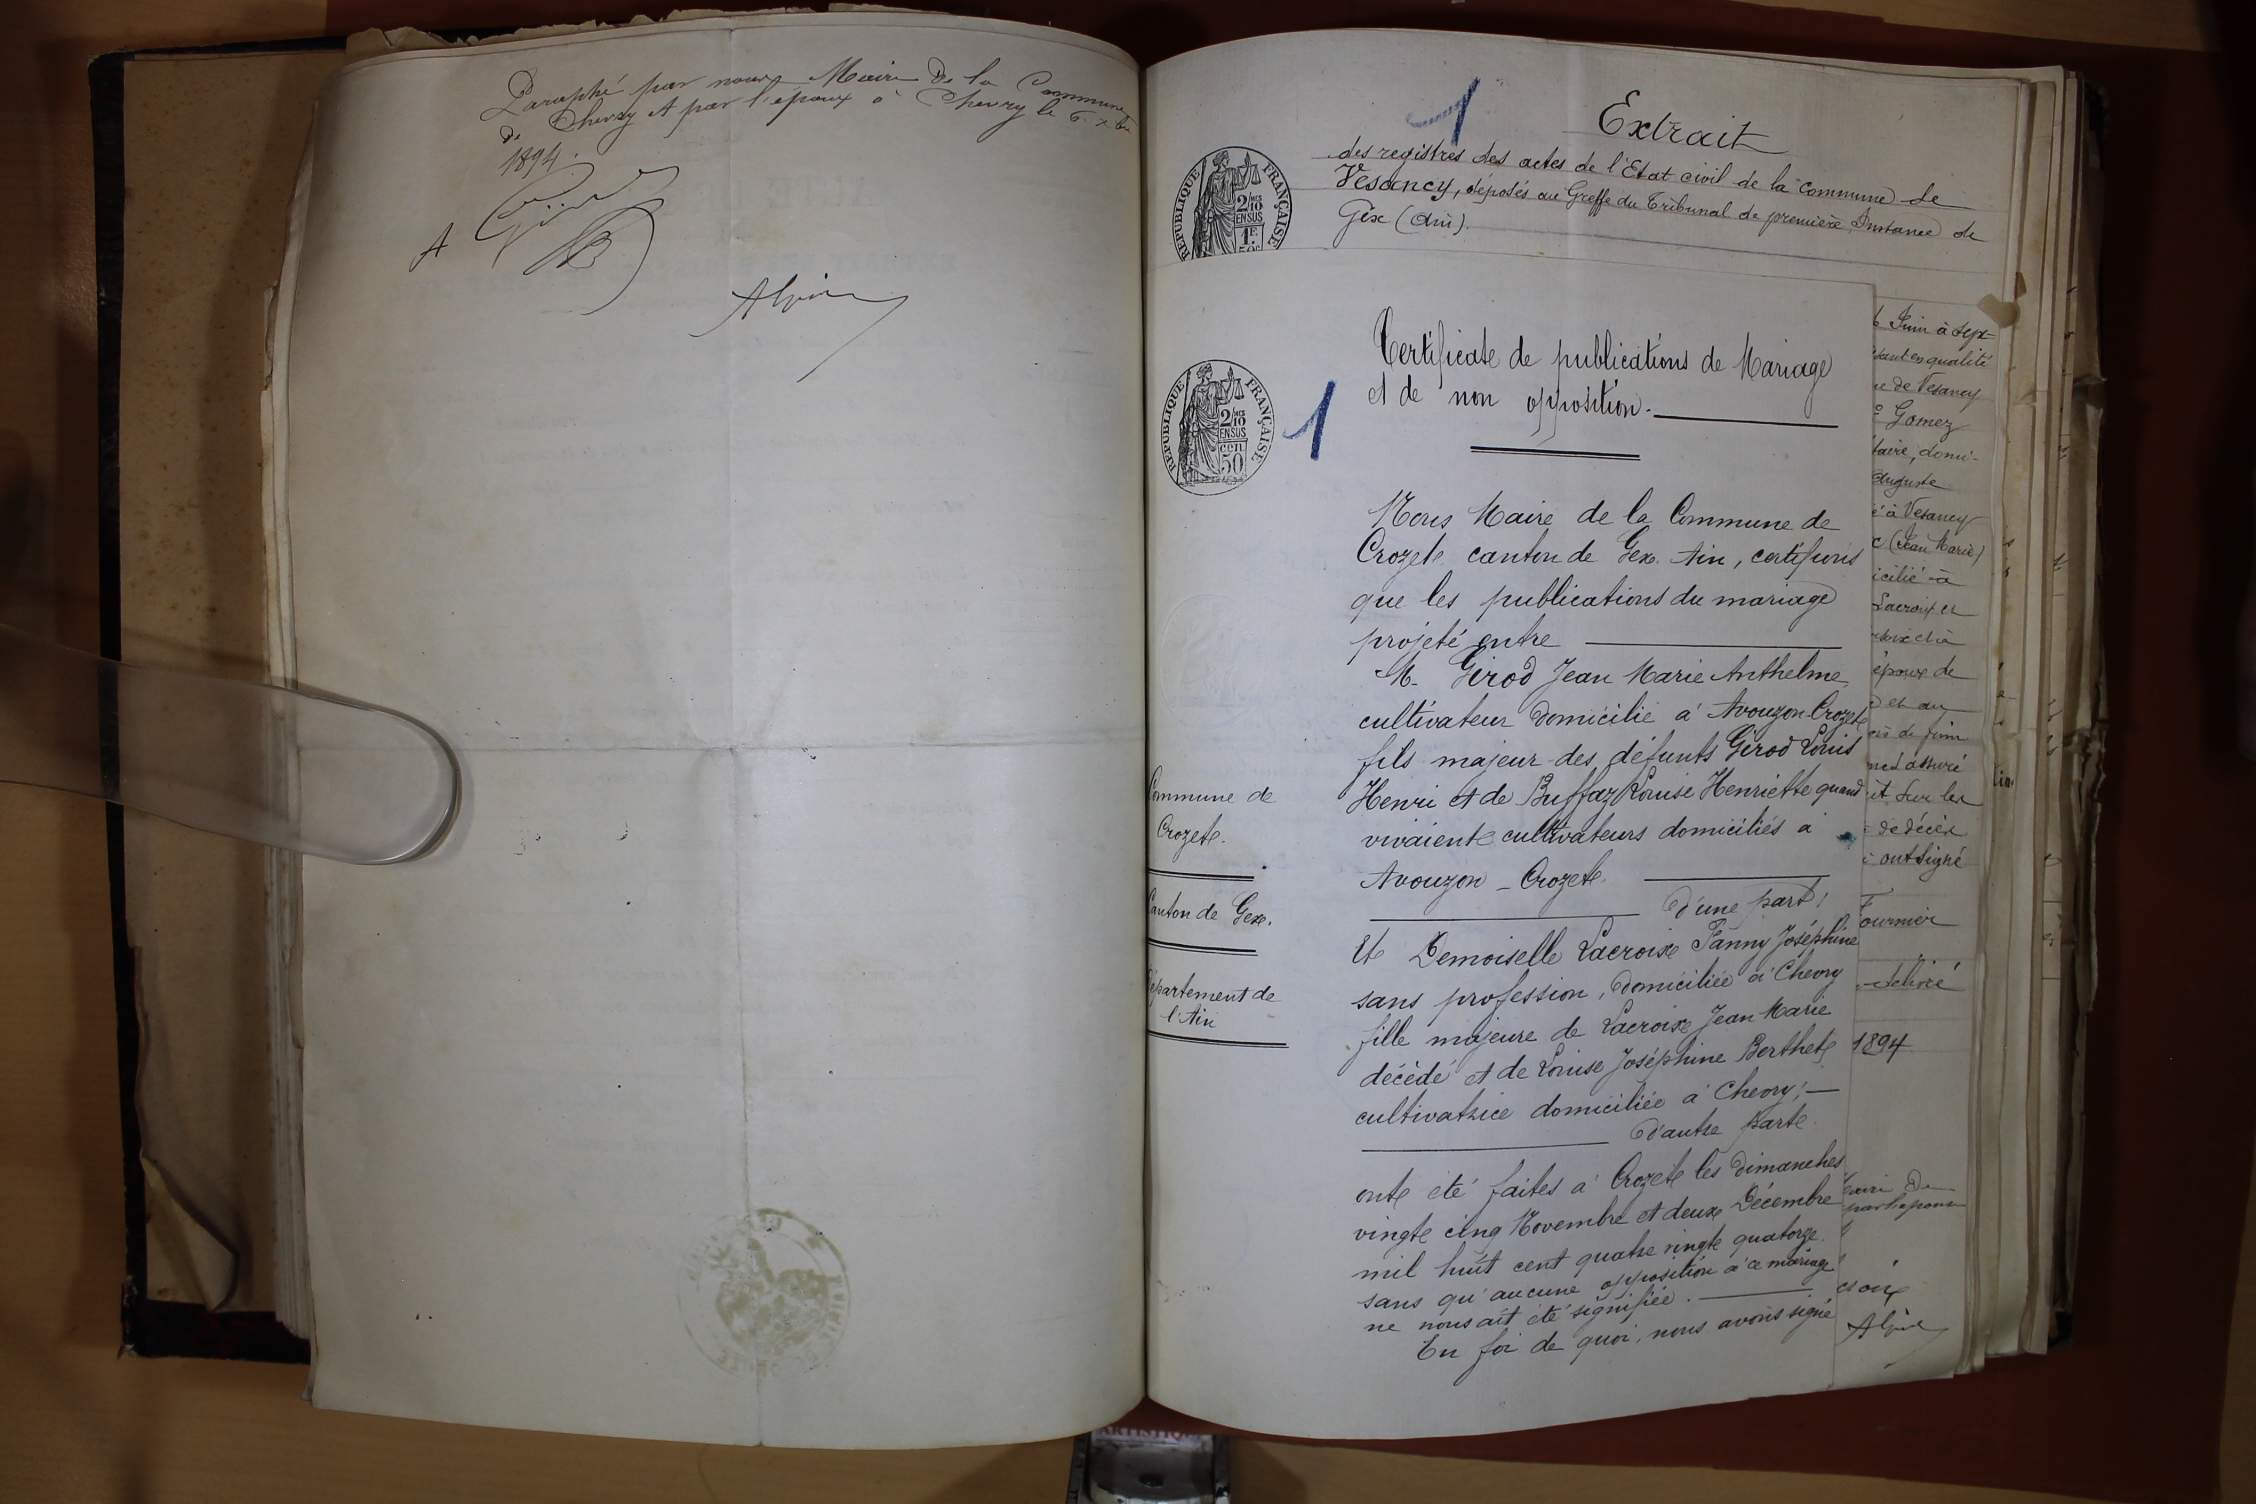 Paraphé par nous Maire de la Commune
de Chevry et par l'époux à Chevry le 6 xbre
1894.
A
Alpin
1
Extrait
des registres des actes de l'Etat civil de la commune de
Vesancy, déposés au Greffe du Tribunal de première Instance de
Gex (Ain).
REPUBLIQUE FRANÇAISE
2/10 MES
EN SUS
1F
50c
Certificate de publications de Mariage
et de non opposition.
REPUBLIQUE FRANÇAISE
2/10 MES
EN SUS
cen
50
1
Commune de
Crozet.
Canton de Gex.
Département de
l'Ain
Nous Maire de la Commune de
Crozet canton de Gex. Ain, certifions
que les publications du mariage
projeté entre
M. Girod Jean Marie Anthelme
cultivateur domicilié à Avouzon-Crozet
fils majeur des défunts Girod Louis
Henri et de Buffaz Louise Henriette quand
vivaient cultivateurs domiciliés à
Avouzon - Crozet.
d'une part;
Et Demoiselle Lacroix Fanny Joséphine
sans profession, domiciliée à Chevry
fille majeure de Lacroix Jean Marie
décédé et de Louise Joséphine Berthet
cultivatrice domiciliée à Chevry;
d'autre part
ont été faites à Crozet les dimanches
vingt cinq Novembre et deux Décembre
mil huit cent quatre vingt quatorze
sans qu'aucune opposition à ce mariage
ne nous ait été signifiée.
En foi de quoi, nous avons signé
6 Juin à sept
en qualité
de Vesancy
Gomez
domi-
Auguste
à Vesancy
(Jean Marie)
icilié à
Lacroix et
époux de
et au
de juin
assuré
it sur les
de décès
ont signé
Fournier
délivré
1894
de
par l'époux
Alpin